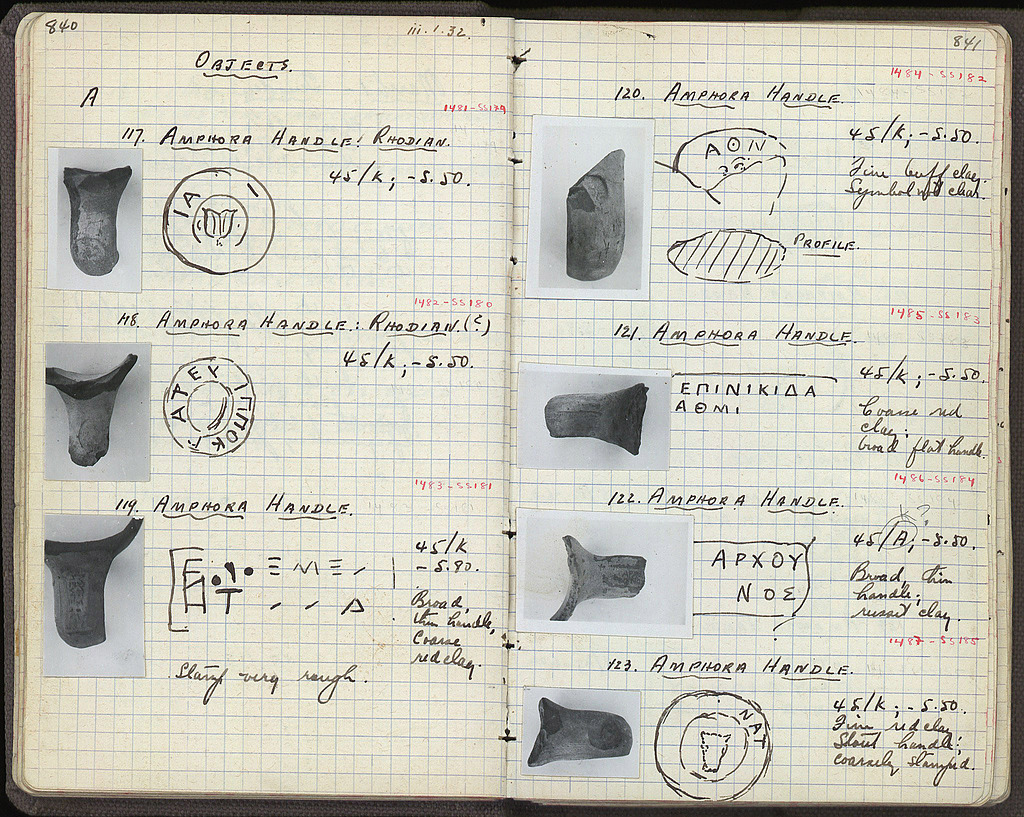 840
iii.1.32.
OBJECTS.
A
1481-SS179
117. AMPHORA HANDLE: RHODIAN.
45/K; -5.50.
ΙΑ Ι
1482-SS180
118. AMPHORA HANDLE: RHODIAN.(?)
45/K; -5.50.
ΙΠΠΟΚΡΑΤΕΥ
1483-SS181
119. AMPHORA HANDLE.
45/K
-5.90.
Broad,
thin handle,
Coarse
red clay.
Stamp very rough.
841
1484-SS182
120. AMPHORA HANDLE.
45/K; -5.50.
ΑΘΝ
Fine buff clay.
Symbol not clear.
PROFILE.
1485-SS183
121. AMPHORA HANDLE.
45/K; -5.50.
ΕΠΙΝΙΚΙΔΑ
ΑΘΜΙ
Coarse red
clay;
broad flat handle.
1486-SS184
122. AMPHORA HANDLE.
K?
45/A; -5.50.
ΑΡΧΟΥ
ΝΟΣ
Broad, thin
handle;
russet clay.
?
1487-SS185
123. AMPHORA HANDLE.
45/K; -5.50.
ΝΑΤ
Fine red clay
Stout handle;
coarsely stamped.